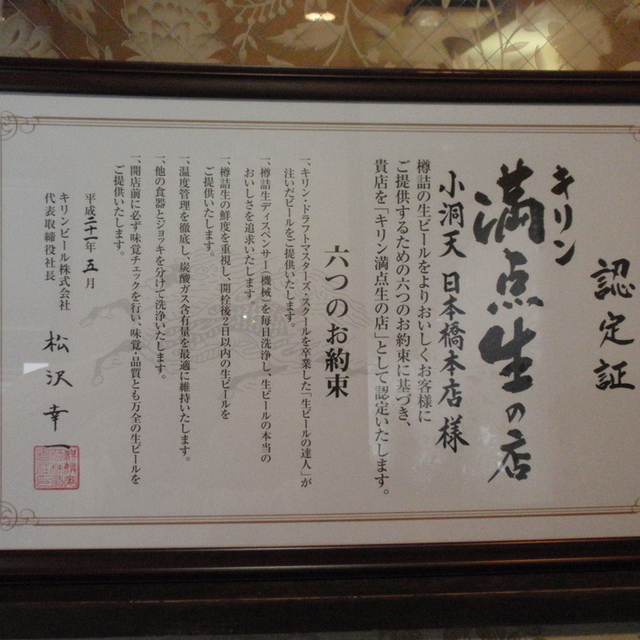 認定証
キリン
満点生の店
小洞天 日本橋本店 様
樽詰の生ビールをよりおいしくお客様に
ご提供するための六つのお約束に基づき、
貴店を「キリン満点生の店」として認定いたします。
六つのお約束
一、キリン・ドラフトマスターズ・スクールを卒業した「生ビールの達人」が
注いだビールをご提供いたします。
一、樽詰生ディスペンサー(機械)を毎日洗浄し、生ビールの本当の
おいしさを追求いたします。
一、樽詰生の鮮度を重視し、開栓後2日以内の生ビールを
ご提供いたします。
一、温度管理を徹底し、炭酸ガス含有量を最適に維持いたします。
一、他の食器とジョッキを分けて洗浄いたします。
一、開店前に必ず味覚チェックを行い、味覚・品質とも万全の生ビールを
ご提供いたします。
平成二十一年 五月
キリンビール株式会社
代表取締役社長 松沢 幸一